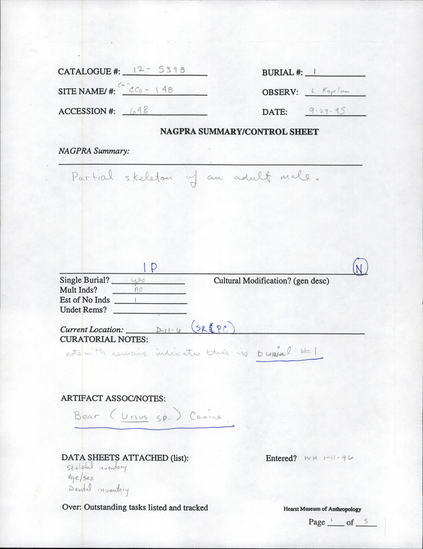 CATALOGUE #: 12-5398 BURIAL #: 1
SITE NAME/#: CCO-148 OBSERV: L Kaplan
ACCESSION #: 698 DATE: 9-29-95
NAGPRA SUMMARY/CONTROL SHEET
NAGPRA Summary:
Partial skeleton of an adult male.
1P N
Single Burial? yes Cultural Modification? (gen desc)
Mult Inds? no
Est of No Inds 1
Undet Rems?
Current Location: D-11-6 (SR&PC)
CURATORIAL NOTES:
note with remains indicates this is burial #1
ARTIFACT ASSOC/NOTES:
Bear (Ursus sp.) Canine.
DATA SHEETS ATTACHED (list): Entered? WH 1-11-96
Skeletal inventory
Age/sex
Dental inventory
Over: Outstanding tasks listed and tracked Hearst Museum of Anthropology
Page 1 of 5